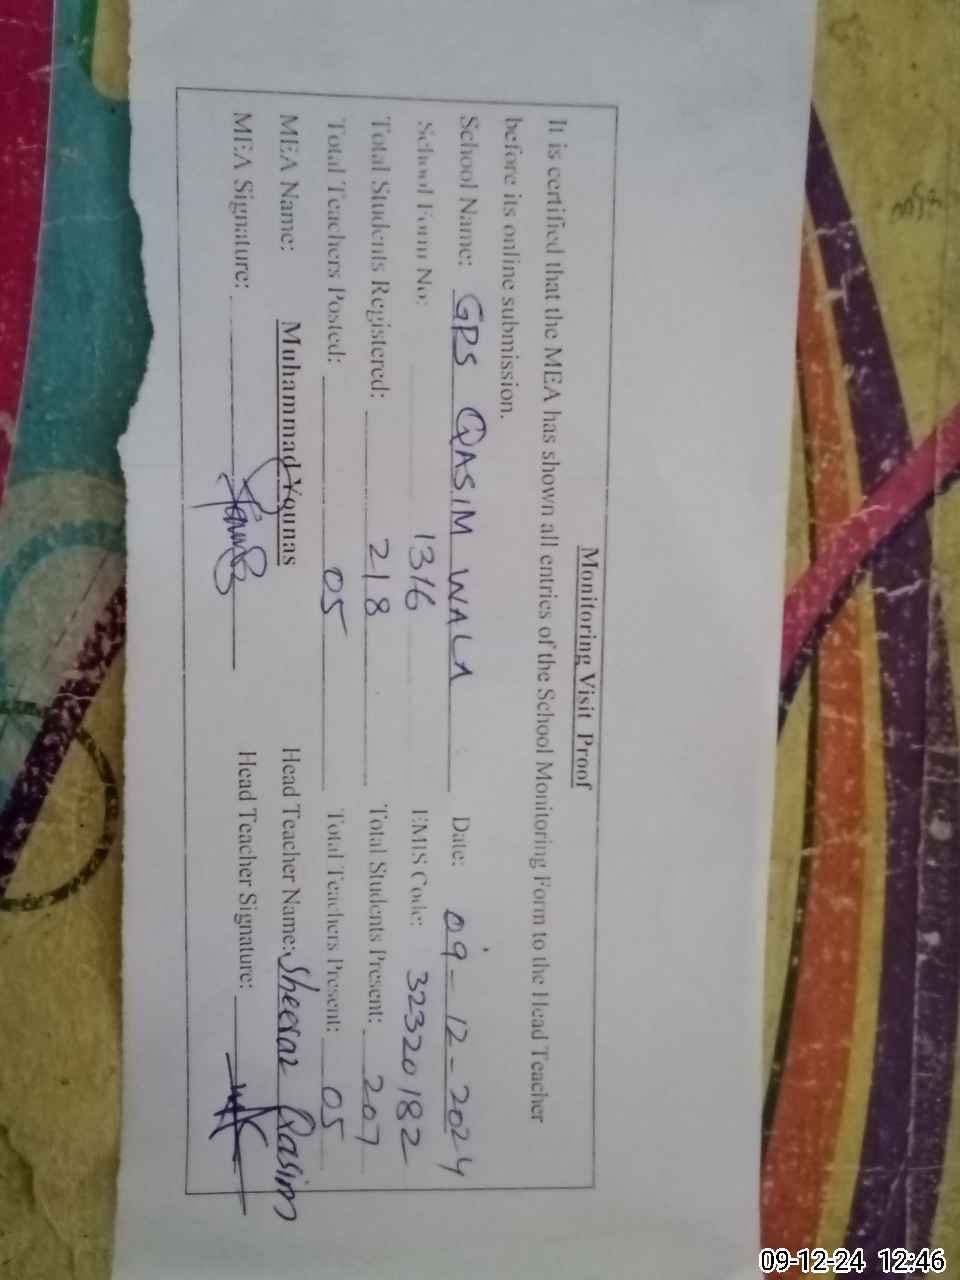 Monitoring Visit Proof
It is certified that the MEA has shown all entries of the School Monitoring Form to the Head Teacher
before its online submission.
School Name: GPS QASIM WALA Date: 09-12-2024
School Form No: 1316 EMIS Code: 32320182
Total Students Registered: 218 Total Students Present: 207
Total Teachers Posted: 05 Total Teachers Present: 05
MEA Name: Muhammad Younas Head Teacher Name: Sheeraz Qasim
MEA Signature: Head Teacher Signature:
09-12-24 12:46